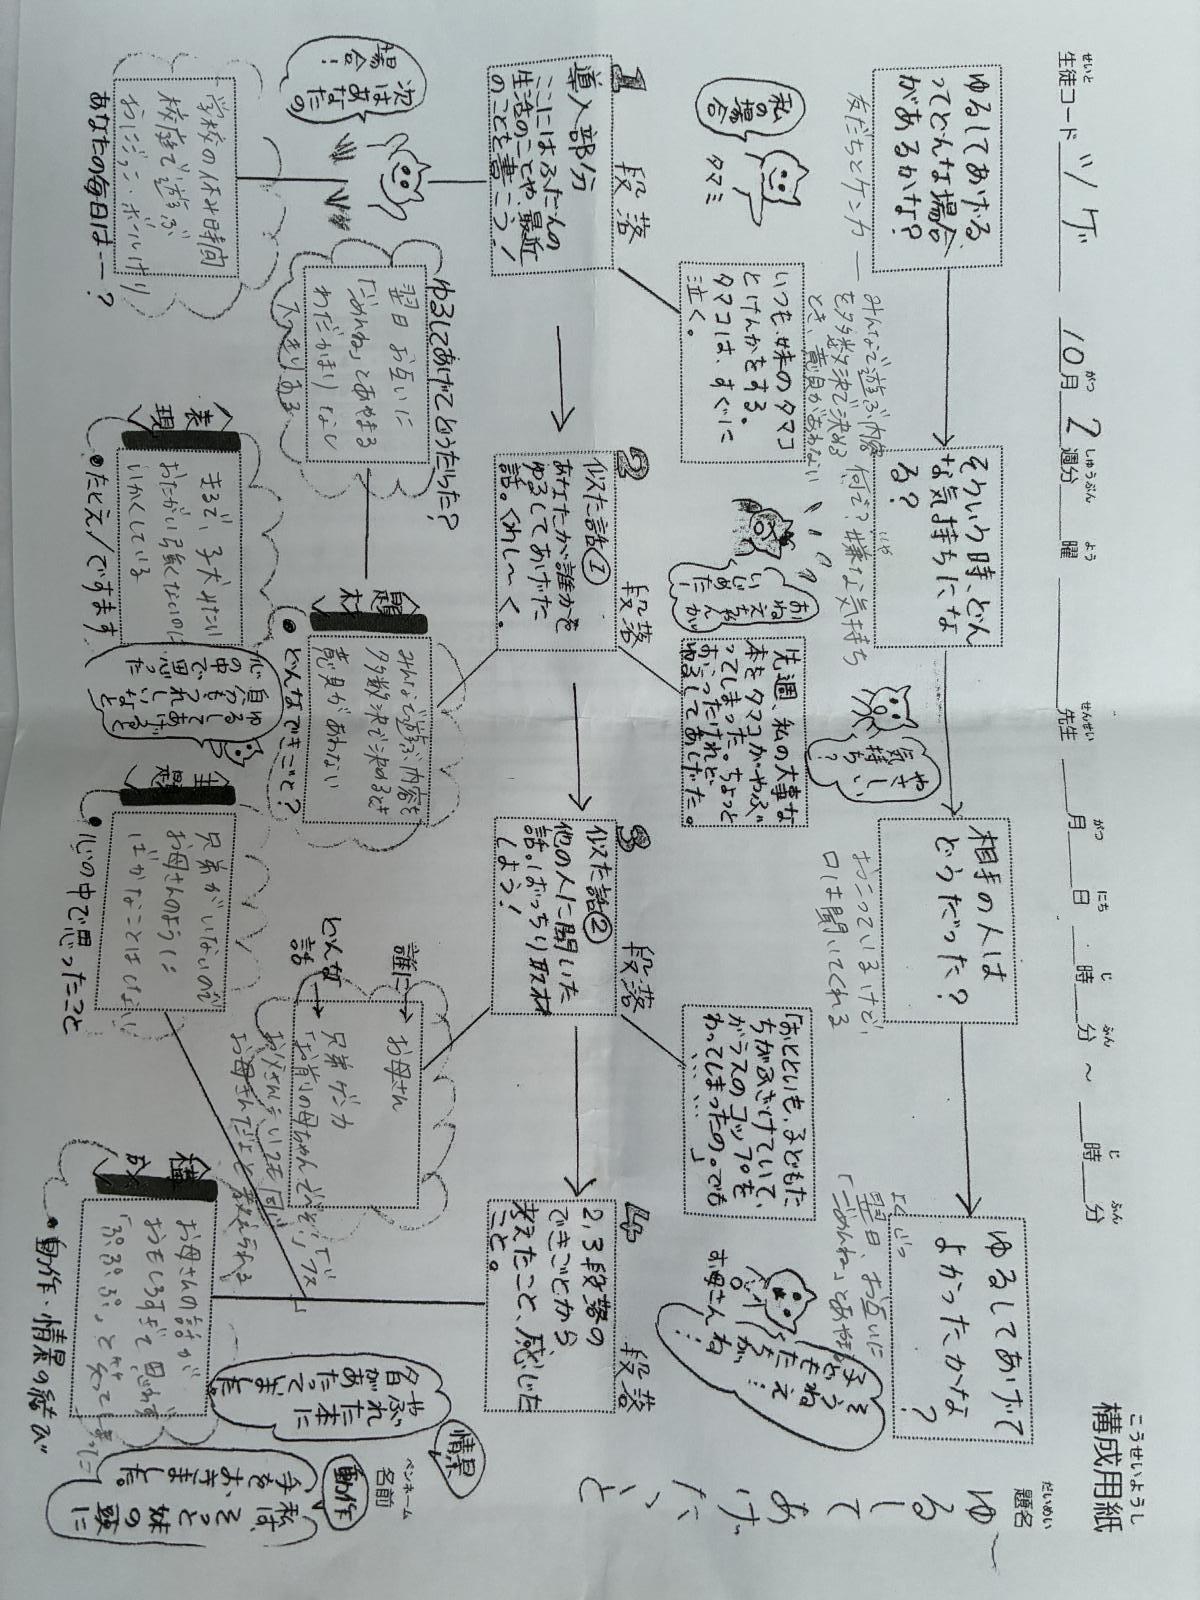 こうせいようし
構成用紙
せいと がつ しゅうぶん よう せんせい がつ にち じ ふん じ ふん
生徒コード ツゲ 10月2週分 曜 先生 月 日 時 分 ～ 時 分
だいめい
題名
ゆるしてあげたいこと
ペンネーム
名前
ゆるしてあげる
ってどんな場合
があるかな？
友だちとケンカ
みんなで遊ぶ内容
を多数決で決める
とき、意見があわない
そういう時、どん
な気持ちにな
る？
何で？嫌な気持ち
相手の人は
どうだった？
おこっているけど、
口は聞いてくれる
ゆるしてあげて
よかったかな
？
翌日、お互いに
「ごめんね」とあやまる
私の
場合
タマミ
いつも、妹のタマコ
とけんかをする。
タマコは、すぐに
泣く。
おねえちゃんが
いじめた！
先週、私の大事な
本をタマコがやぶ
ってしまった。ちょっと
おこったけれど
ゆるしてあげた。
やさしい
気持ち？
「おとといも、子どもた
ちがふざけていて、
ガラスのコップを
わってしまったの。でも
……」
お母さんね
1段落
導入部分
ここにはふだんの
生活のことや、最近
のことを書こう！
2段落
似た話①
あなたが誰かを
ゆるしてあげた
話。くわし〜く。
3段落
似た話②
他の人に聞いた
話。ばっちり取材
しよう！
4段落
2,3段落の
できごとから
考えたこと、感じた
こと。
次はあ
なたの
場合！
学校の休み時間
校庭で遊ぶ
おにごっこ・ボールけり
あなたの毎日は……？
ゆるしてあげてどうだった？
翌日 お互いに
「ごめんね」とあやまる
わだかまりなし
すっきりする
題材
みんなで遊ぶ内容を
多数決で決めるとき
意見があわない
●どんなできごと？
表現
まるで、子犬みたい
●たとえ/ですます
心の中で思った
誰に→
お母さん
どんな話→
兄弟ゲンカ
主題
兄弟がいないので
お母さんのように
ばかなことはしない
●心の中で思ったこと
構成
お母さんの話が
おもしろすぎて思わず
「ぷぷぷ」と笑ってしまった
●動作・情景の結び
情景
やぶれた本に
夕日が
あたって
いました。
動作
私は、そっと妹の頭に
手をおきました。